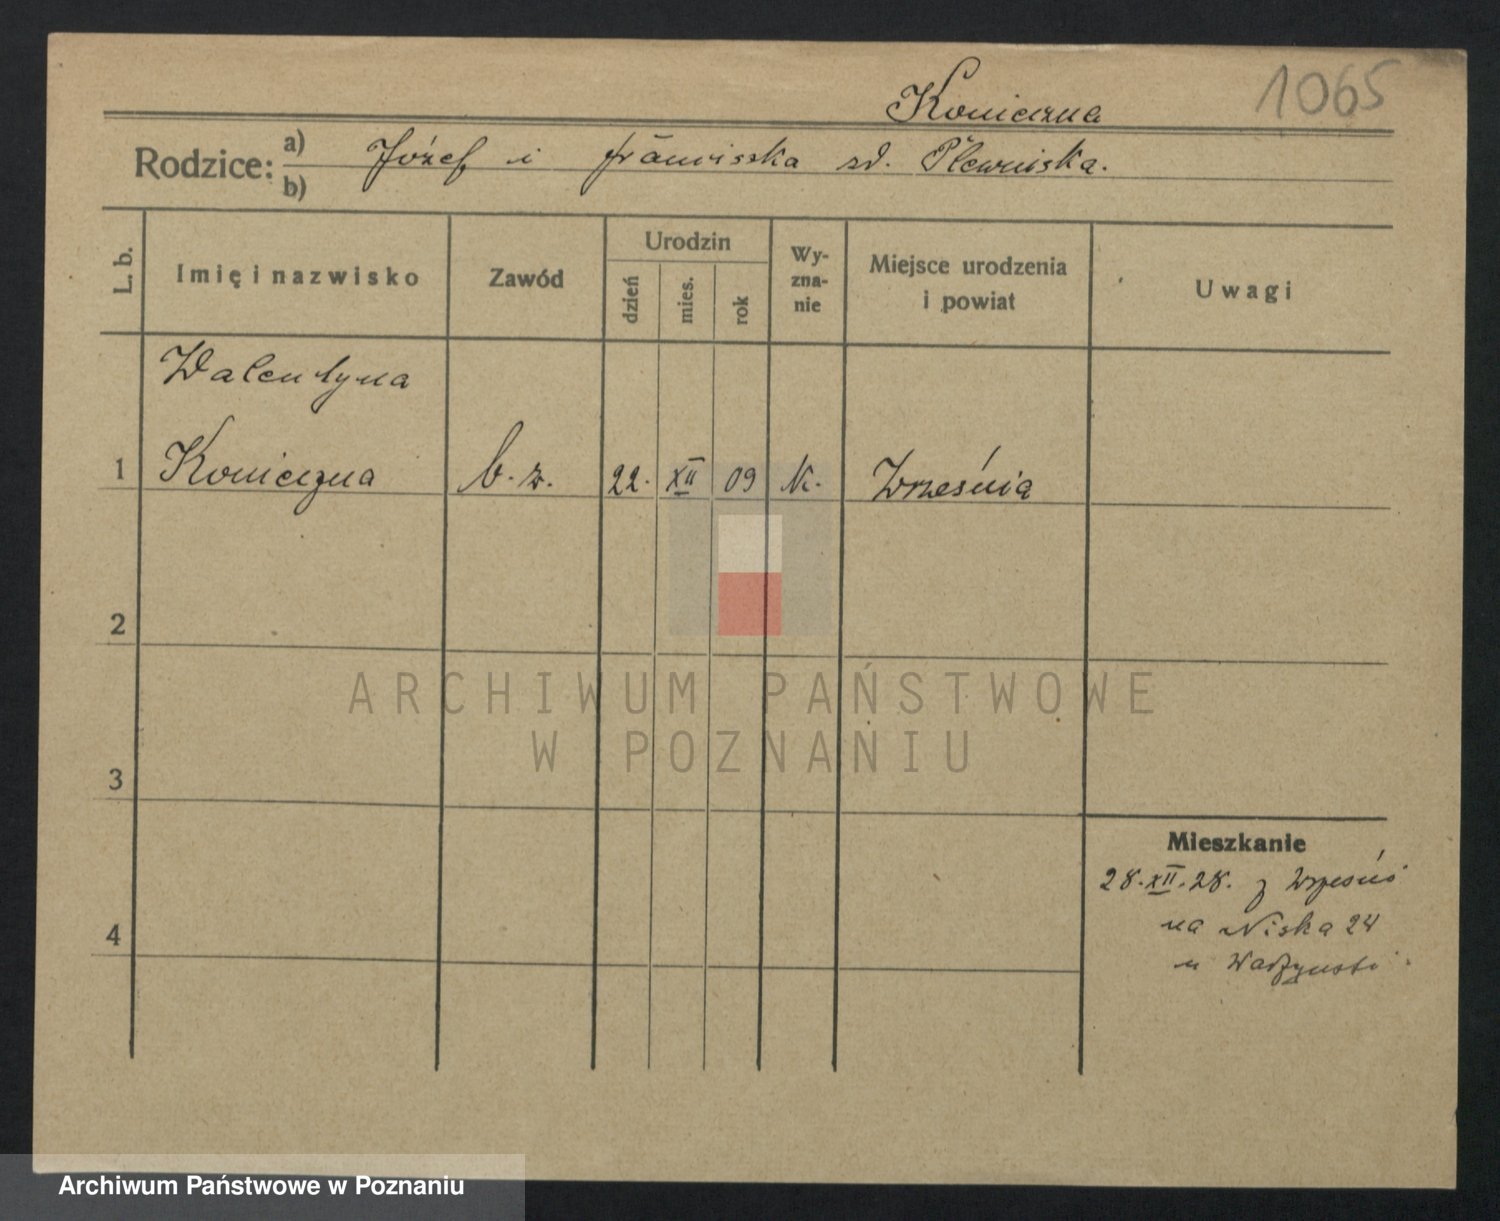 1065
Koniczna
Rodzice:
a) Józef i Franciszka zd. Plewniska.
b)
L. b.
Imię i nazwisko
Zawód
Urodzin
dzień
mies.
rok
Wy-
zna-
nie
Miejsce urodzenia
i powiat
Uwagi
Walentyna
1 Koniczna b. z. 22. XII 09 K. Września
2
3
4
Mieszkanie
28. XII. 28. z Wrześni
na Niska 24
u
ARCHIWUM PAŃSTWOWE
W POZNANIU
Archiwum Państwowe w Poznaniu